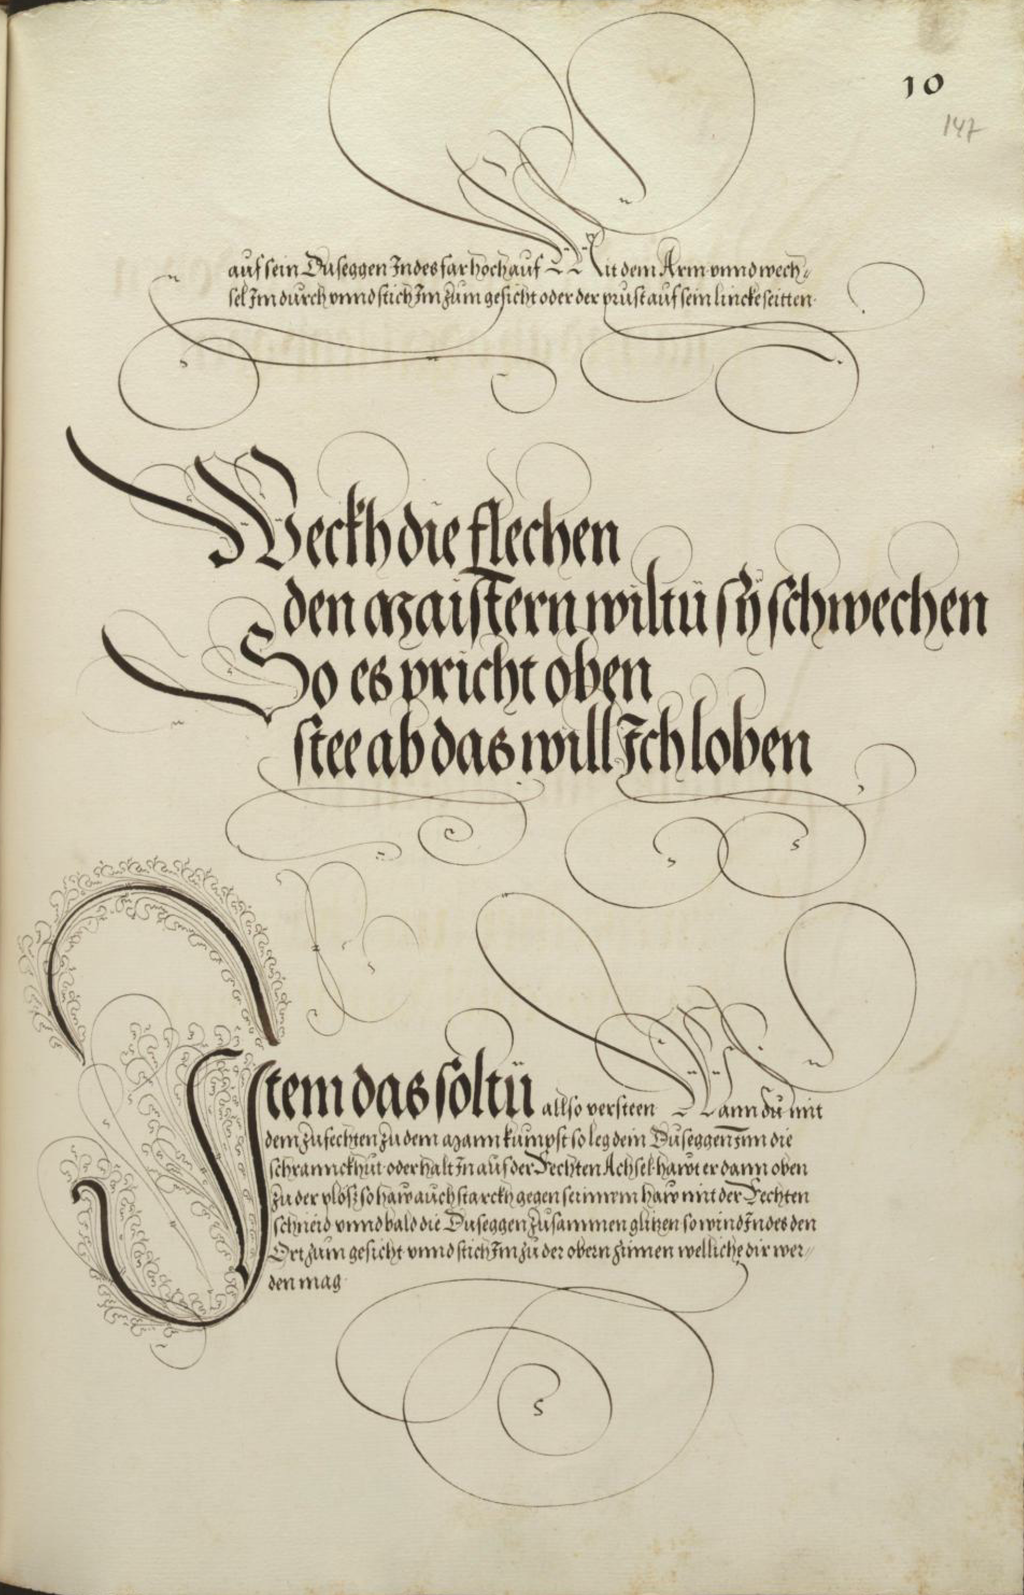 10
147
auf sein Duseggen Indes far hoch auf Mit dem Arm vnnd wech⸗
sel Im durch vnnd stich Im zum gesicht oder der prust auf sein lincke seitten.
Weckh die flechen
den Maistern wiltu sÿ schwechen
So es pricht oben
stee ab das will Ich loben
Item das soltu allso versteen Wann du mit
dem zufechten zu dem Mann kumpst so leg dein Duseggen Inn die
schrannckhut oder halt In auf der Rechten Achsel hawt er dann oben
zu der plösz so haw auch starckh gegen seinnem haw mit der Rechten
schneid vnnd bald die Duseggen zusammen glitzen so wind Indes den
Ort zum gesicht vnnd stich Im zu der obern zinnen welliche dir wer⸗
den mag.